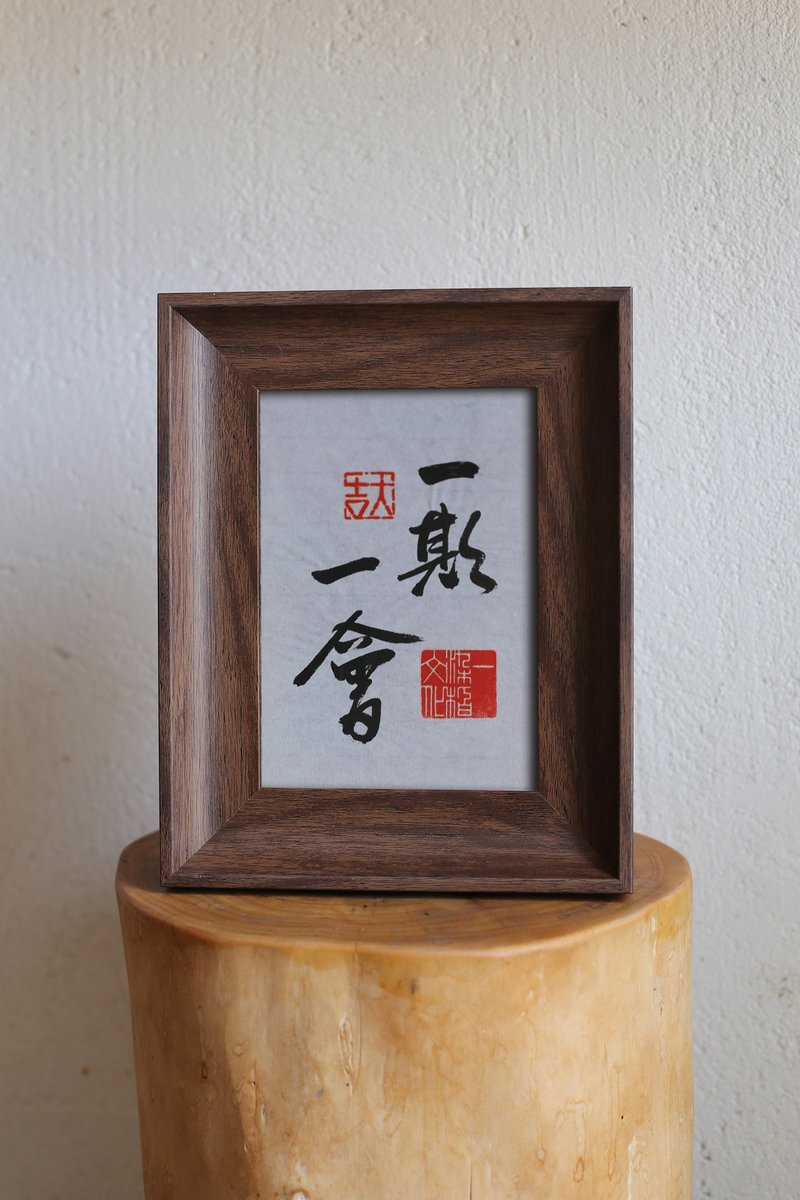 一期
一會
一
文化